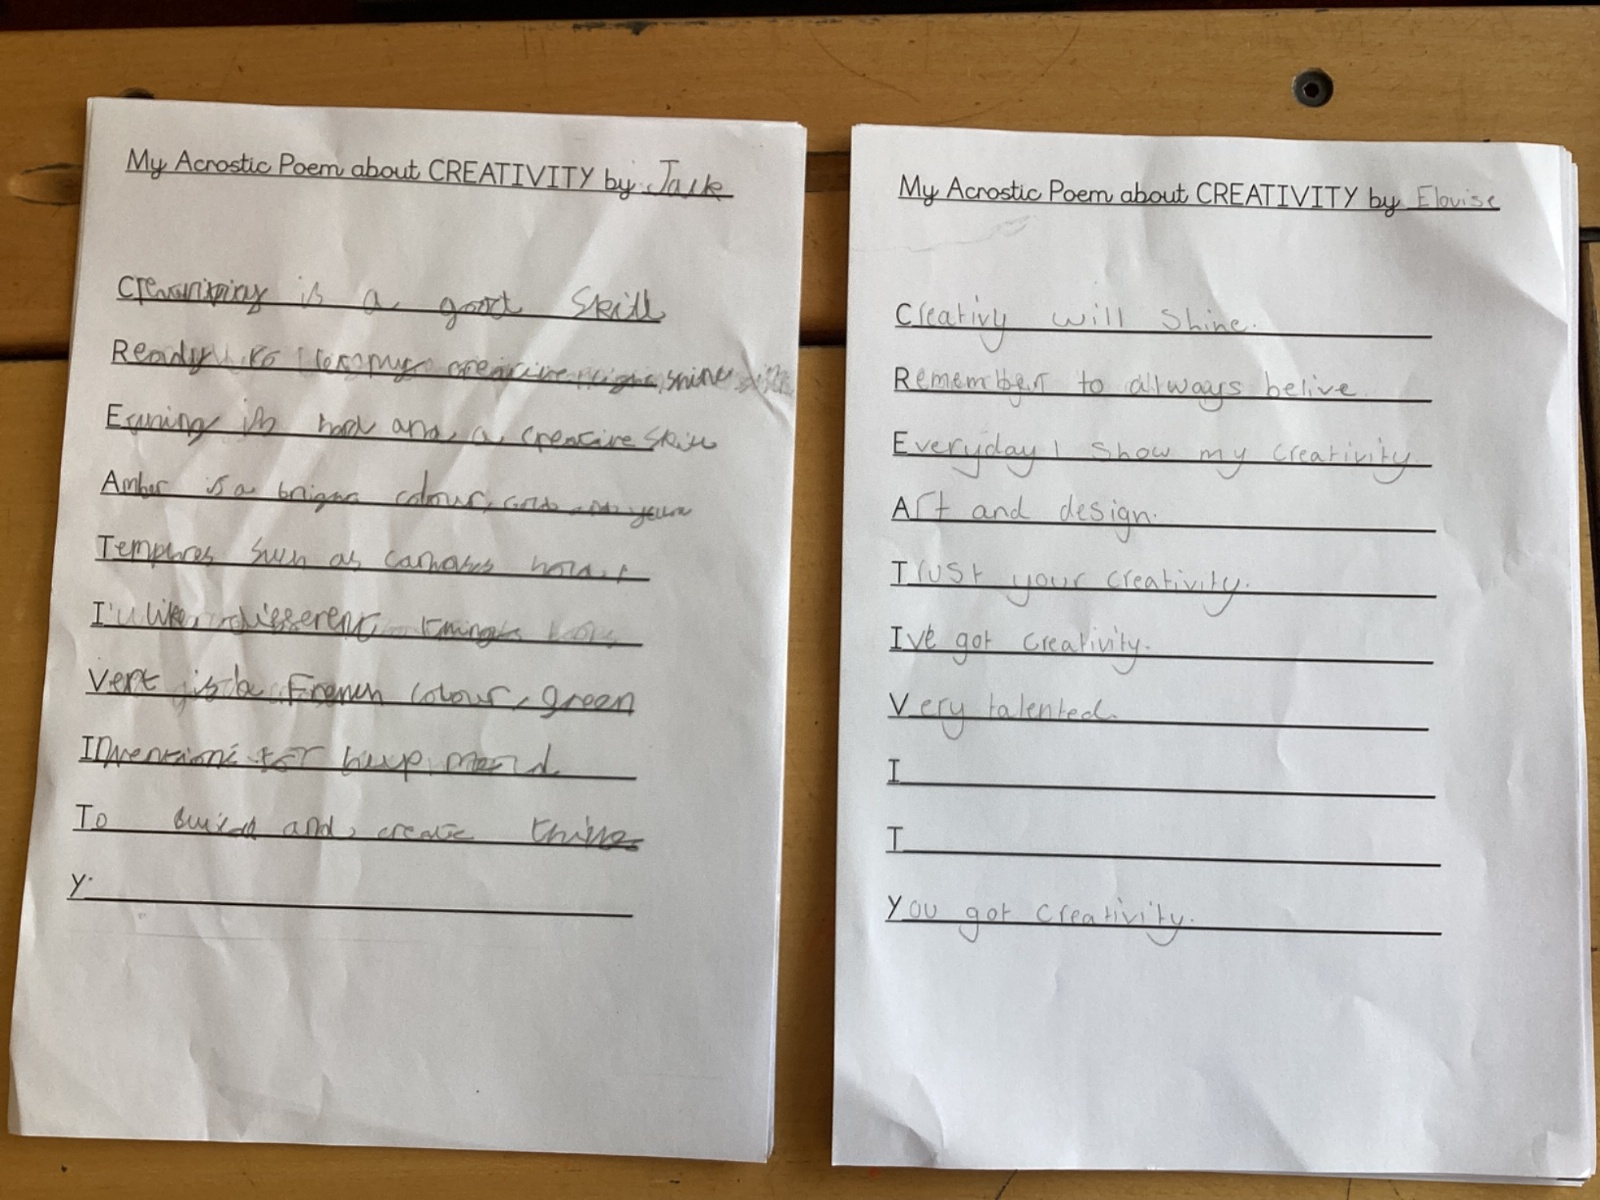 My Acrostic Poem about CREATIVITY by Jack
is a good skill
Ready to my creative shine
is hard and a creative skill
Amber is a colour,
such as
I'll like different things
Vert is a French colour, green
Inventions for
To build and create things
Y
My Acrostic Poem about CREATIVITY by Elouise
Creativy will shine.
Remember to always belive.
Everyday I show my creativity.
Art and design.
Trust your creativity.
Ive got creativity.
Very talented.
I
T
You got creativity.